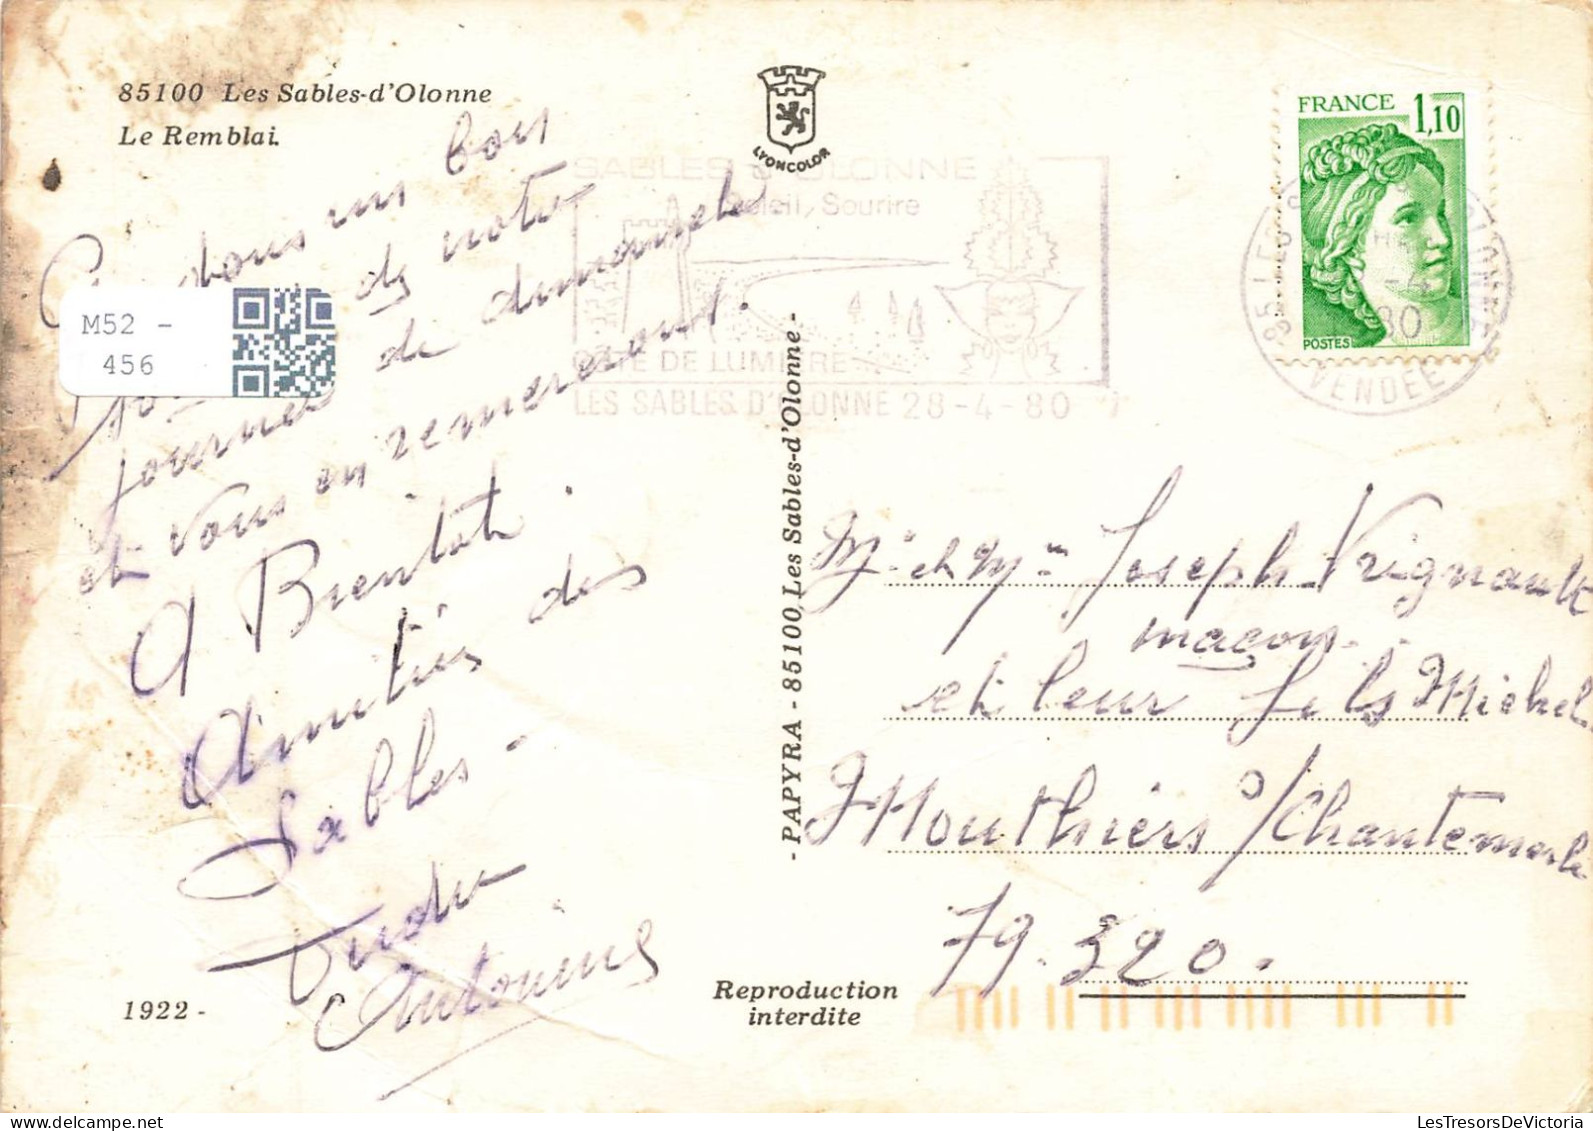 85100 Les Sables-d'Olonne
Le Remblai.
LYONCOLOR
FRANCE 1,10
POSTES
SABLES D'OLONNE
Soleil, Sourire
DE LUMIERE
LES SABLES D'OLONNE 28-4-80
85 LES OLONNE
-4
80
VENDEE
M52 -
456
un bon
de notre
de dimanche
journée
et vous en remerciant.
A Bientôt
Amitiés des
Sables -
Antonins
1922 -
- PAPYRA - 85100 Les Sables-d'Olonne -
Mr et Mme Joseph Vrignault
maçon
et leur fils Michel
Mouthiers s/Chantemerle
79.320.
Reproduction
interdite
LesTresorsDeVictoria.com